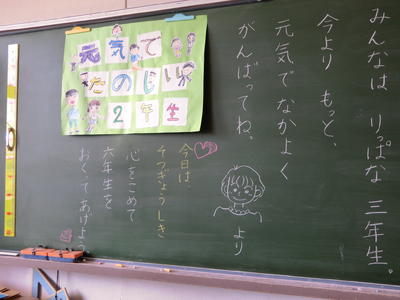 みんなは りっぱな 三年生。
今より もっと、
元気で なかよく
がんばってね。
より
元気で
たのしい
2年生
今日は、
そつぎょうしき
心をこめて
六年生を
おくってあげよう